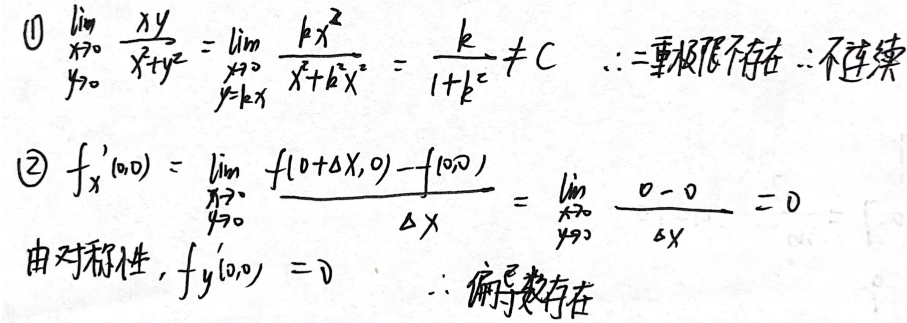 ① lim x→0 y→0 xy/(x²+y²) = lim x→0 y=kx kx²/(x²+k²x²) = k/(1+k²) ≠ C ∴二重极限不存在 ∴不连续
② fx'(0,0) = lim x→0 y→0 (f(0+ΔX,0)-f(0,0))/ΔX = lim x→0 y→0 (0-0)/ΔX = 0
由对称性, fy'(0,0) = 0 ∴ 偏导数存在